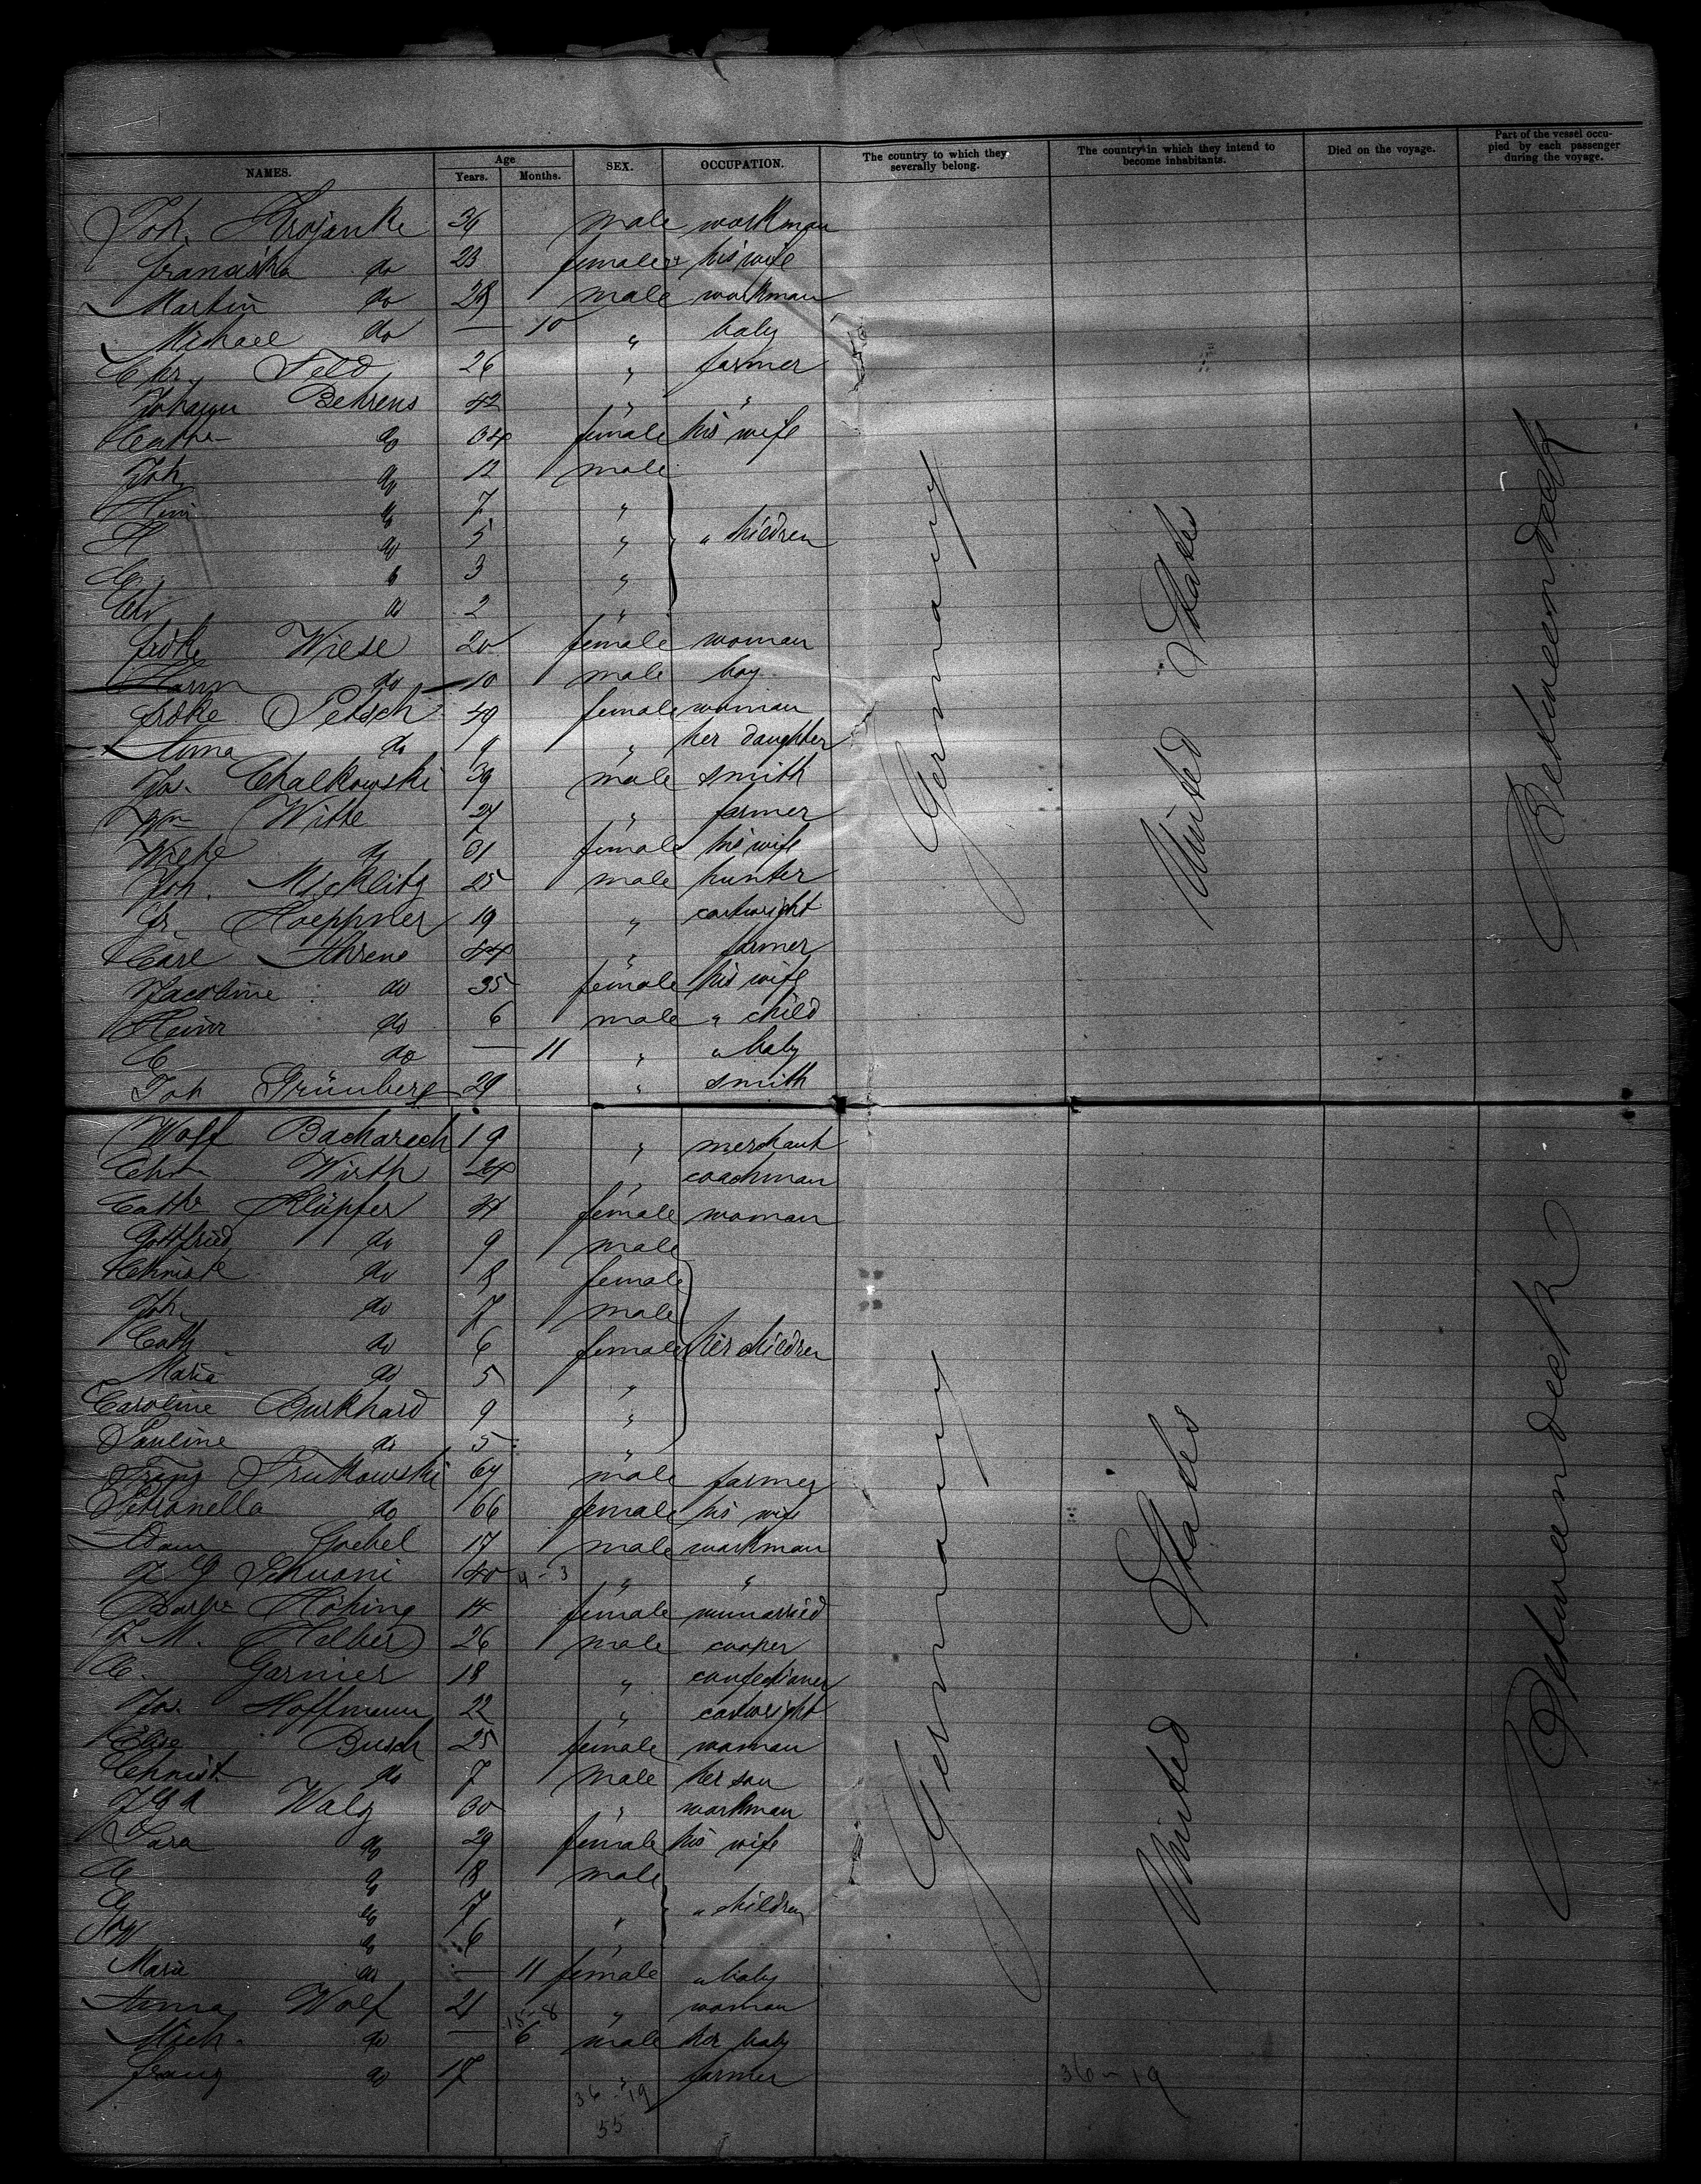 NAMES. Age Years. Months. SEX. OCCUPATION. The country to which they severally belong. The country in which they intend to become inhabitants. Died on the voyage. Part of the vessel occupied by each passenger during the voyage.
Joh. Krojanke 34 male workman
Franciska do 23 female his wife
Martin do 28 male workman
Michael do — 10 " baby
Chr. Feld 26 " farmer
Johann Behrens 42 " "
Cathe do 34 female his wife
Joh do 12 male
Hein do 7 "
H do 5 " " children
do 3 "
do 2 "
Fridke Wiese 20 female woman
Harm do 10 male boy
Fridke Petsch 49 female woman
Anna do 9 " her daughter
Jos. Chalkowski 39 male smith
Wm Witte 27 " farmer
Wiebe do 31 female his wife
Joh. Micklitz 25 male hunter
Fr. Hoeppner 19 " cartwright
Carl Ahrens 44 " farmer
Jacobine do 35 female his wife
Heinr do 6 male " child
C do — 11 " " baby
Joh Grünberg 29 " smith
Wolf Bacharach 19 " merchant
Chr Wirth 24 " coachman
Cathe Klüpfer female woman
Gottfried do 9 male
Christe do 8 female
Joh. do 7 male
Cath do 6 female her children
Maria do 5 "
Caroline Burkhard 9 "
Pauline do 5 "
Franz Trutkowski 64 male farmer
Petronella do 66 female his wife
Adam Goebel 17 male workman
40 4-3 " "
Barbe Höhing 14 female unmarried
J. M. Helber 26 male cooper
C. Garnier 18 " confectioner
Jos. Hoffmann 22 " cartwright
Elise Busch 25 female woman
Christ. do 7 male her son
Walz 30 " workman
Sara do 29 female his wife
do 8 male
do 7 " " children
do 6 "
Marie do — 11 female " baby
Anna Wolf 21 " woman
15-8
Mich. do — 6 male her baby
Franz do 17 " farmer
36-19
55
36-19
Germany
United States
Betweendeck
Germany
United States
Betweendeck